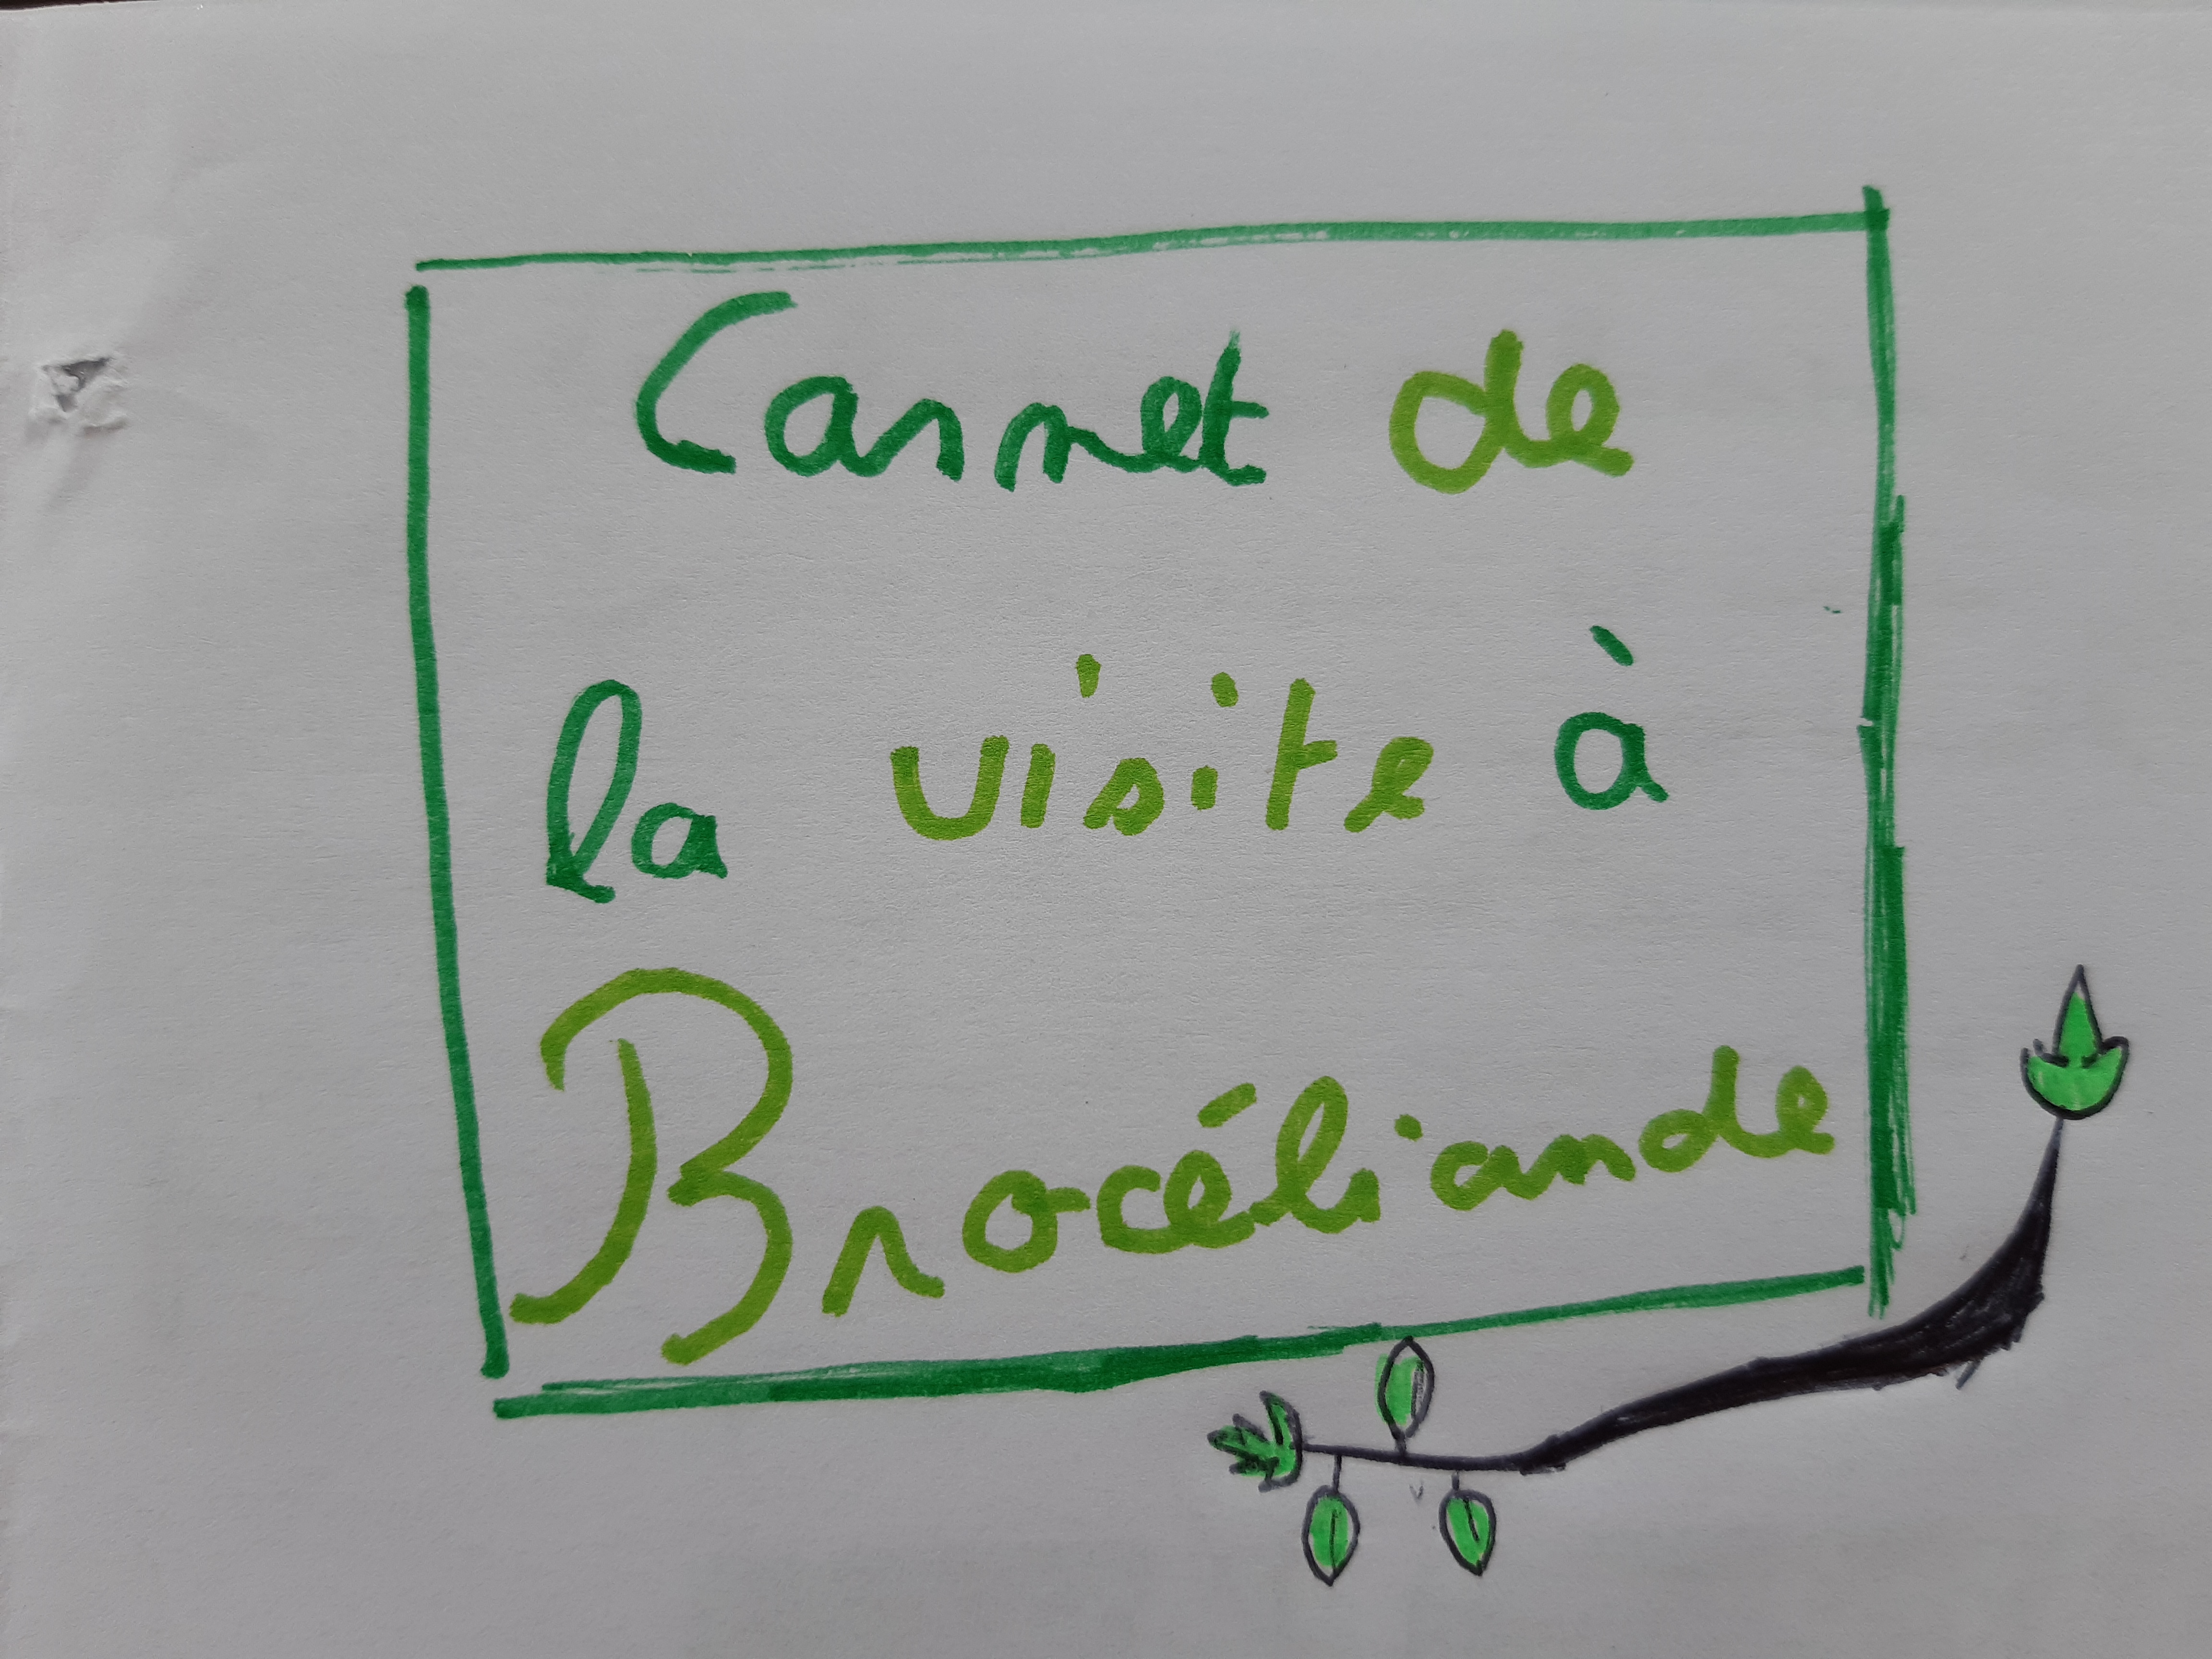 Carnet de
la visite à
Brocéliande